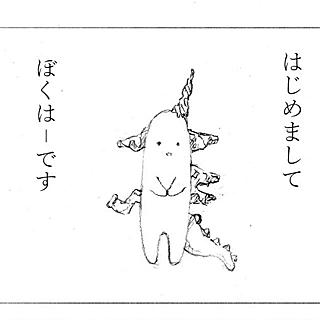 はじめまして
ぼくはーです